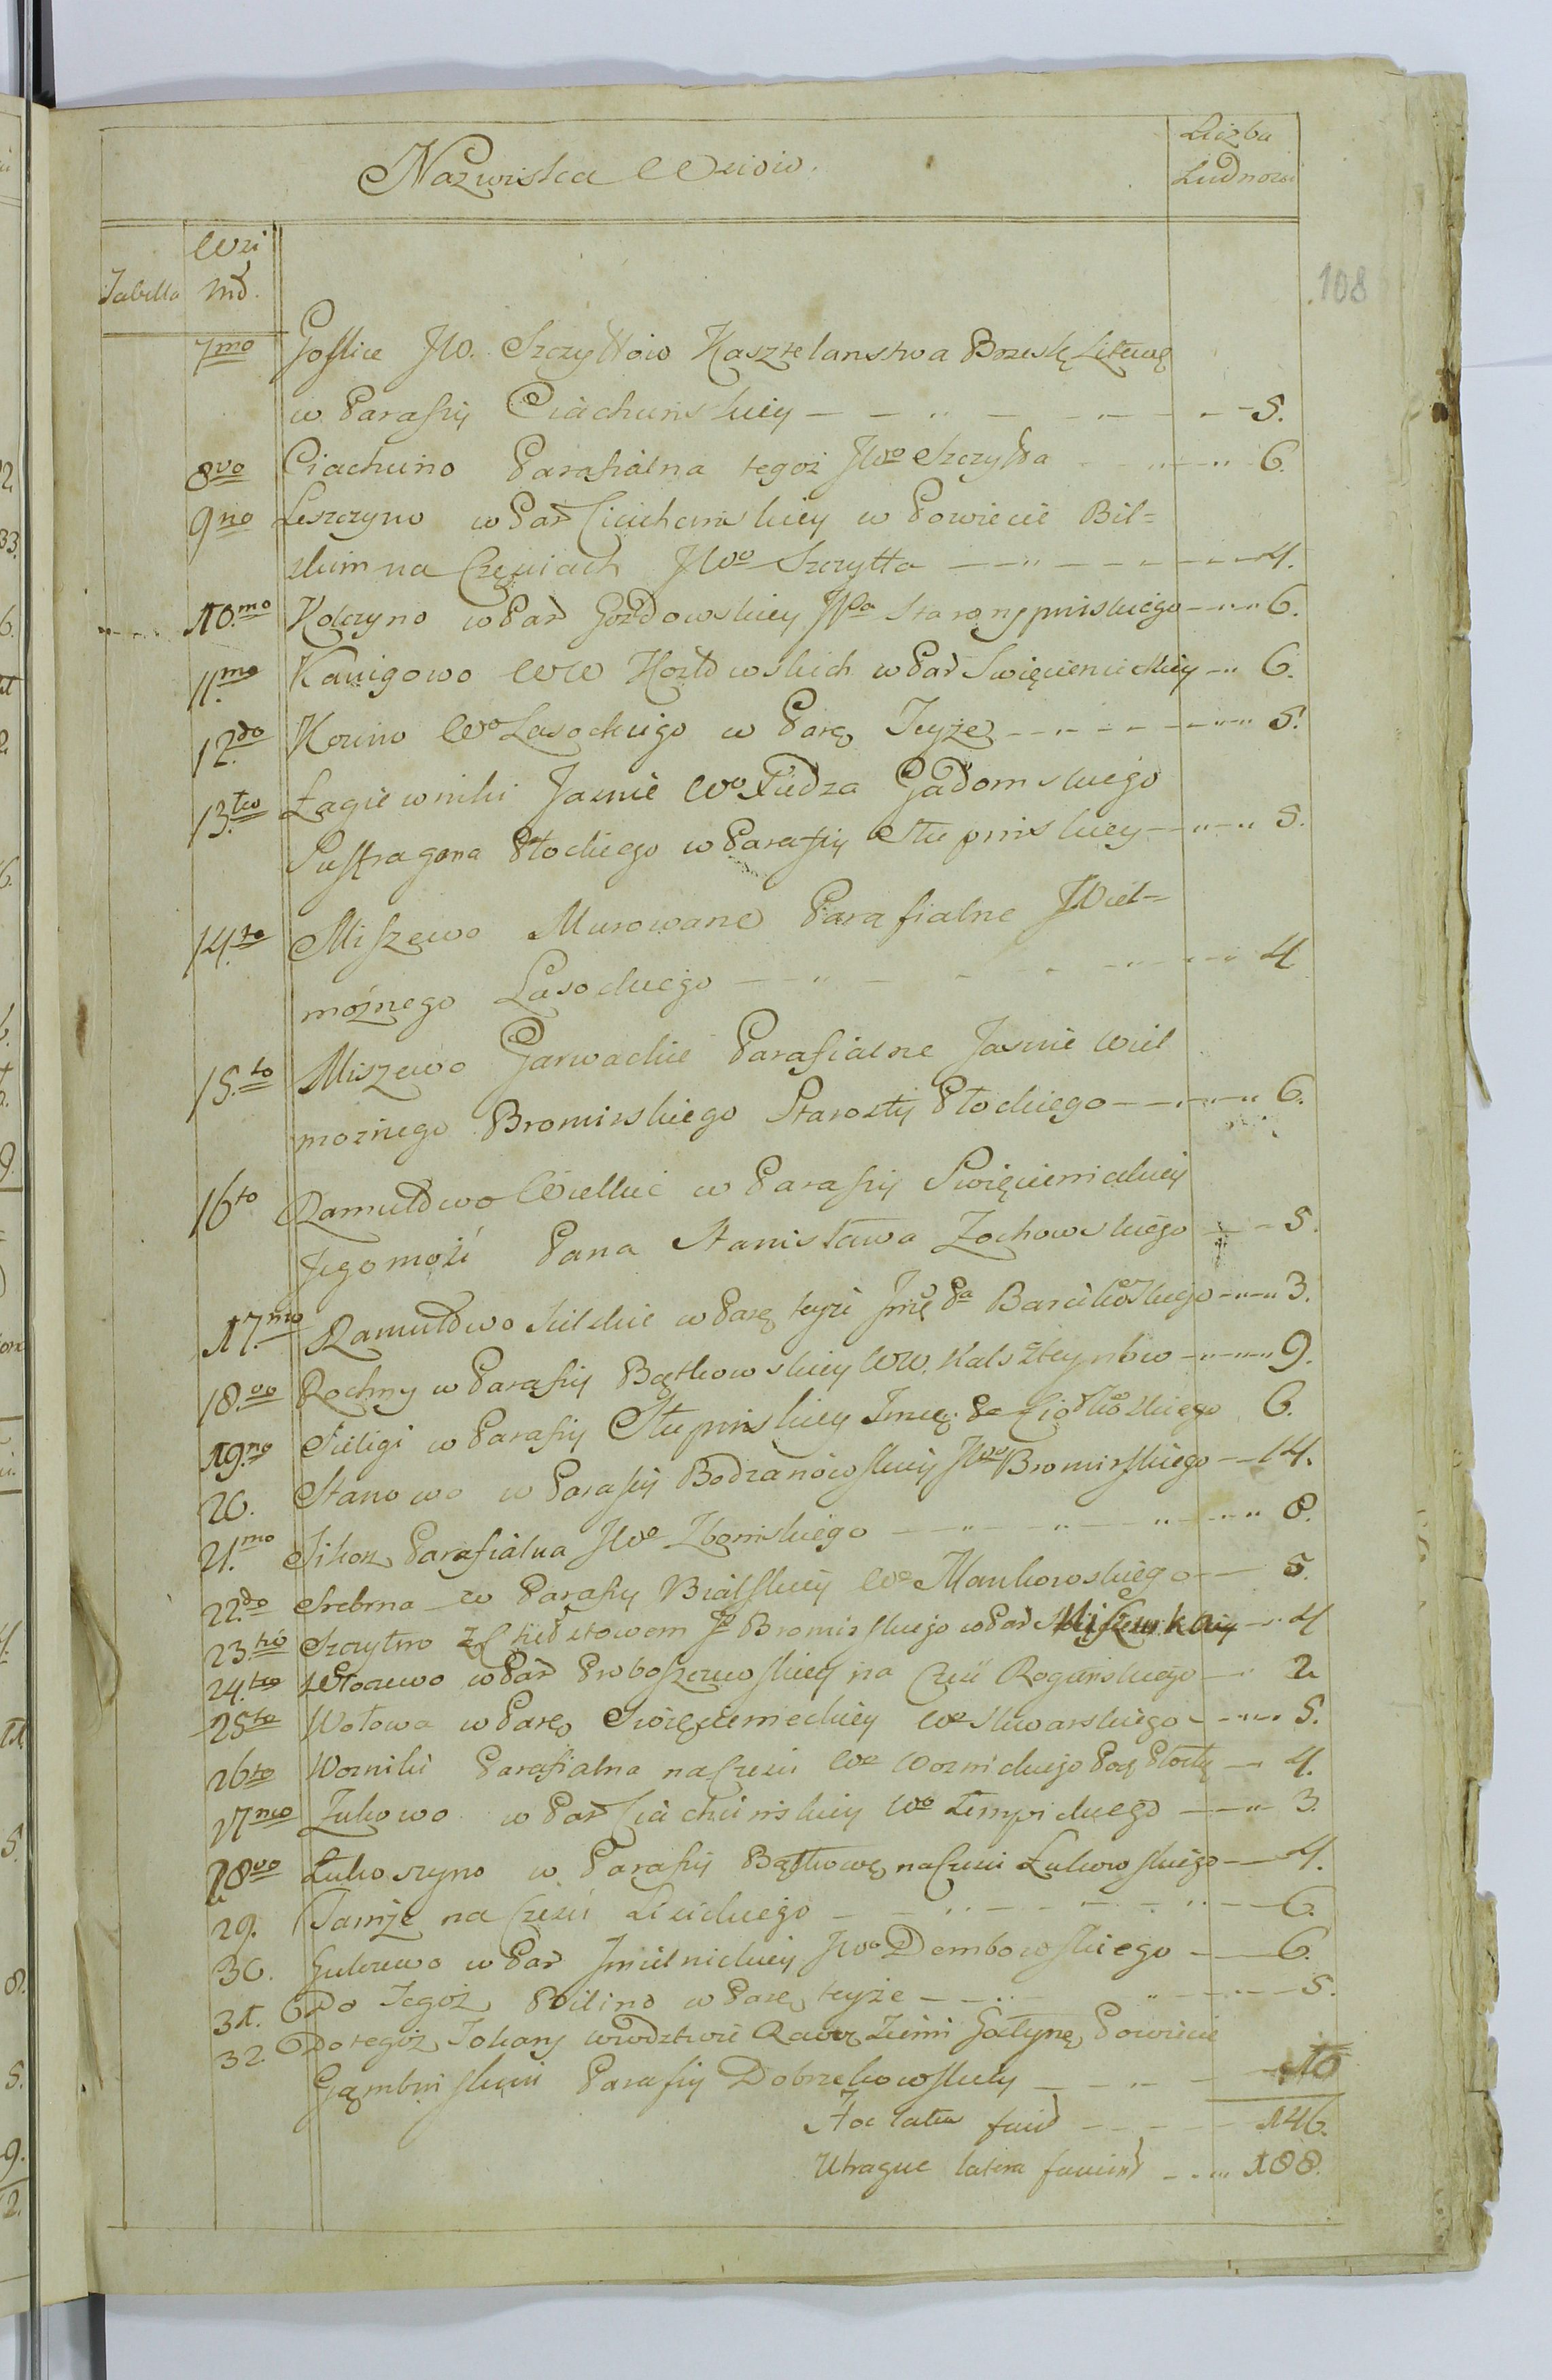 Liczba
Nazwiska Wsiow. Ludnosci
Wsi
Tabella Nd. 108
7mo Goslice JW. Szczyttow Kasztelanstwa Brzesk Litewę
w Parafii Ciachcinskiey 5.
8vo Ciachcino Parafialna tegoż JWo Szczytta 6.
9no Leszczyno w Par Ciachcinskiey w Powiecie Bil=
skim na Częsciach JWo Szczytta 4.
10.mo Kolczyno w Par Gozdowskiey JPa Starorypinskiego 6.
11.mo Kanigowo WW Kozłowskich w Par Święcienieckiey 6.
12.do Kocino Wo Lasockiego w Parę Teyże 5.
13.tio Łagiewniki Jasnie Wo Xiedza Gadomskiego
Suffragana Płockiego w Parafiy Słupinskiey 5.
14.to Miszewo Murowane Parafialne JWiel=
możnego Lasockiego 4
15.to Miszewo Garwackie Parafialne Jasnie Wiel
możnego Bromirskiego Starosty Płockiego 6.
16to Ramułtowo Wielkie w Parafiy Swięcienieckiey
Jegomość Pana Stanisława Zochowskiego 5.
17.mo Ramułtowo Sielskie w Parę teyże Jmę Pa Barcikoskiego 3.
18.vo Rochny w Parafiy Bątkowskiey WW. Kalszteynow 9.
19.no Sieligi w Parafiy Słupinskiey Jmę. Pa Ciołkoskiego 6.
20. Stanowo w Parafiy Bodzanowskiey JWo Bromirskiego 14.
21.mo Sikorz Parafialna JWo Zboinskiego 8.
22.do Srebrna w Parafiy Bialskiey Wo Mankowskiego 5.
23.tio Szczytno z Jo Bromirskiego w Par Miszewskiey 4
24.to Setłocewo w Par Proboszczewskiey na Częsci Roguskiego 2
25.to Wołowa w Parę Swięcienieckiey Wo Slwarskiego 5.
26to Wozniki Parafialna na Częsci Wo Woznickiego Podę Płockę 4.
27mo Żukowo w Par Ciachcinskiey Wo Łempickiego 3.
28vo Łukoszyno w Parafiy Bątkowę na Częsci Łukowskiego 4.
29. Tamże na Częsci Lisickiego 6.
30. Gulczewo w Par Jmielnickiey JWo Dembowskiego 6.
31. Do Tegoż Bilino w Parę teyże 5.
32. Do tegoż Tokary wWodztwie Rawę Ziemi Gostynę Powiecie
Gąmbinskim Parafiy Dobrzykowskiey 10
Hoc latus facit 146.
Utraque latera faciunt 188.